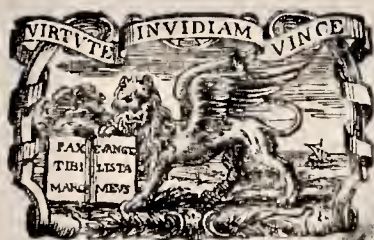 VIRTVTE INVIDIAM VINCE
PAX
TIBI
MARC
EVANGE
LISTA
MEVS